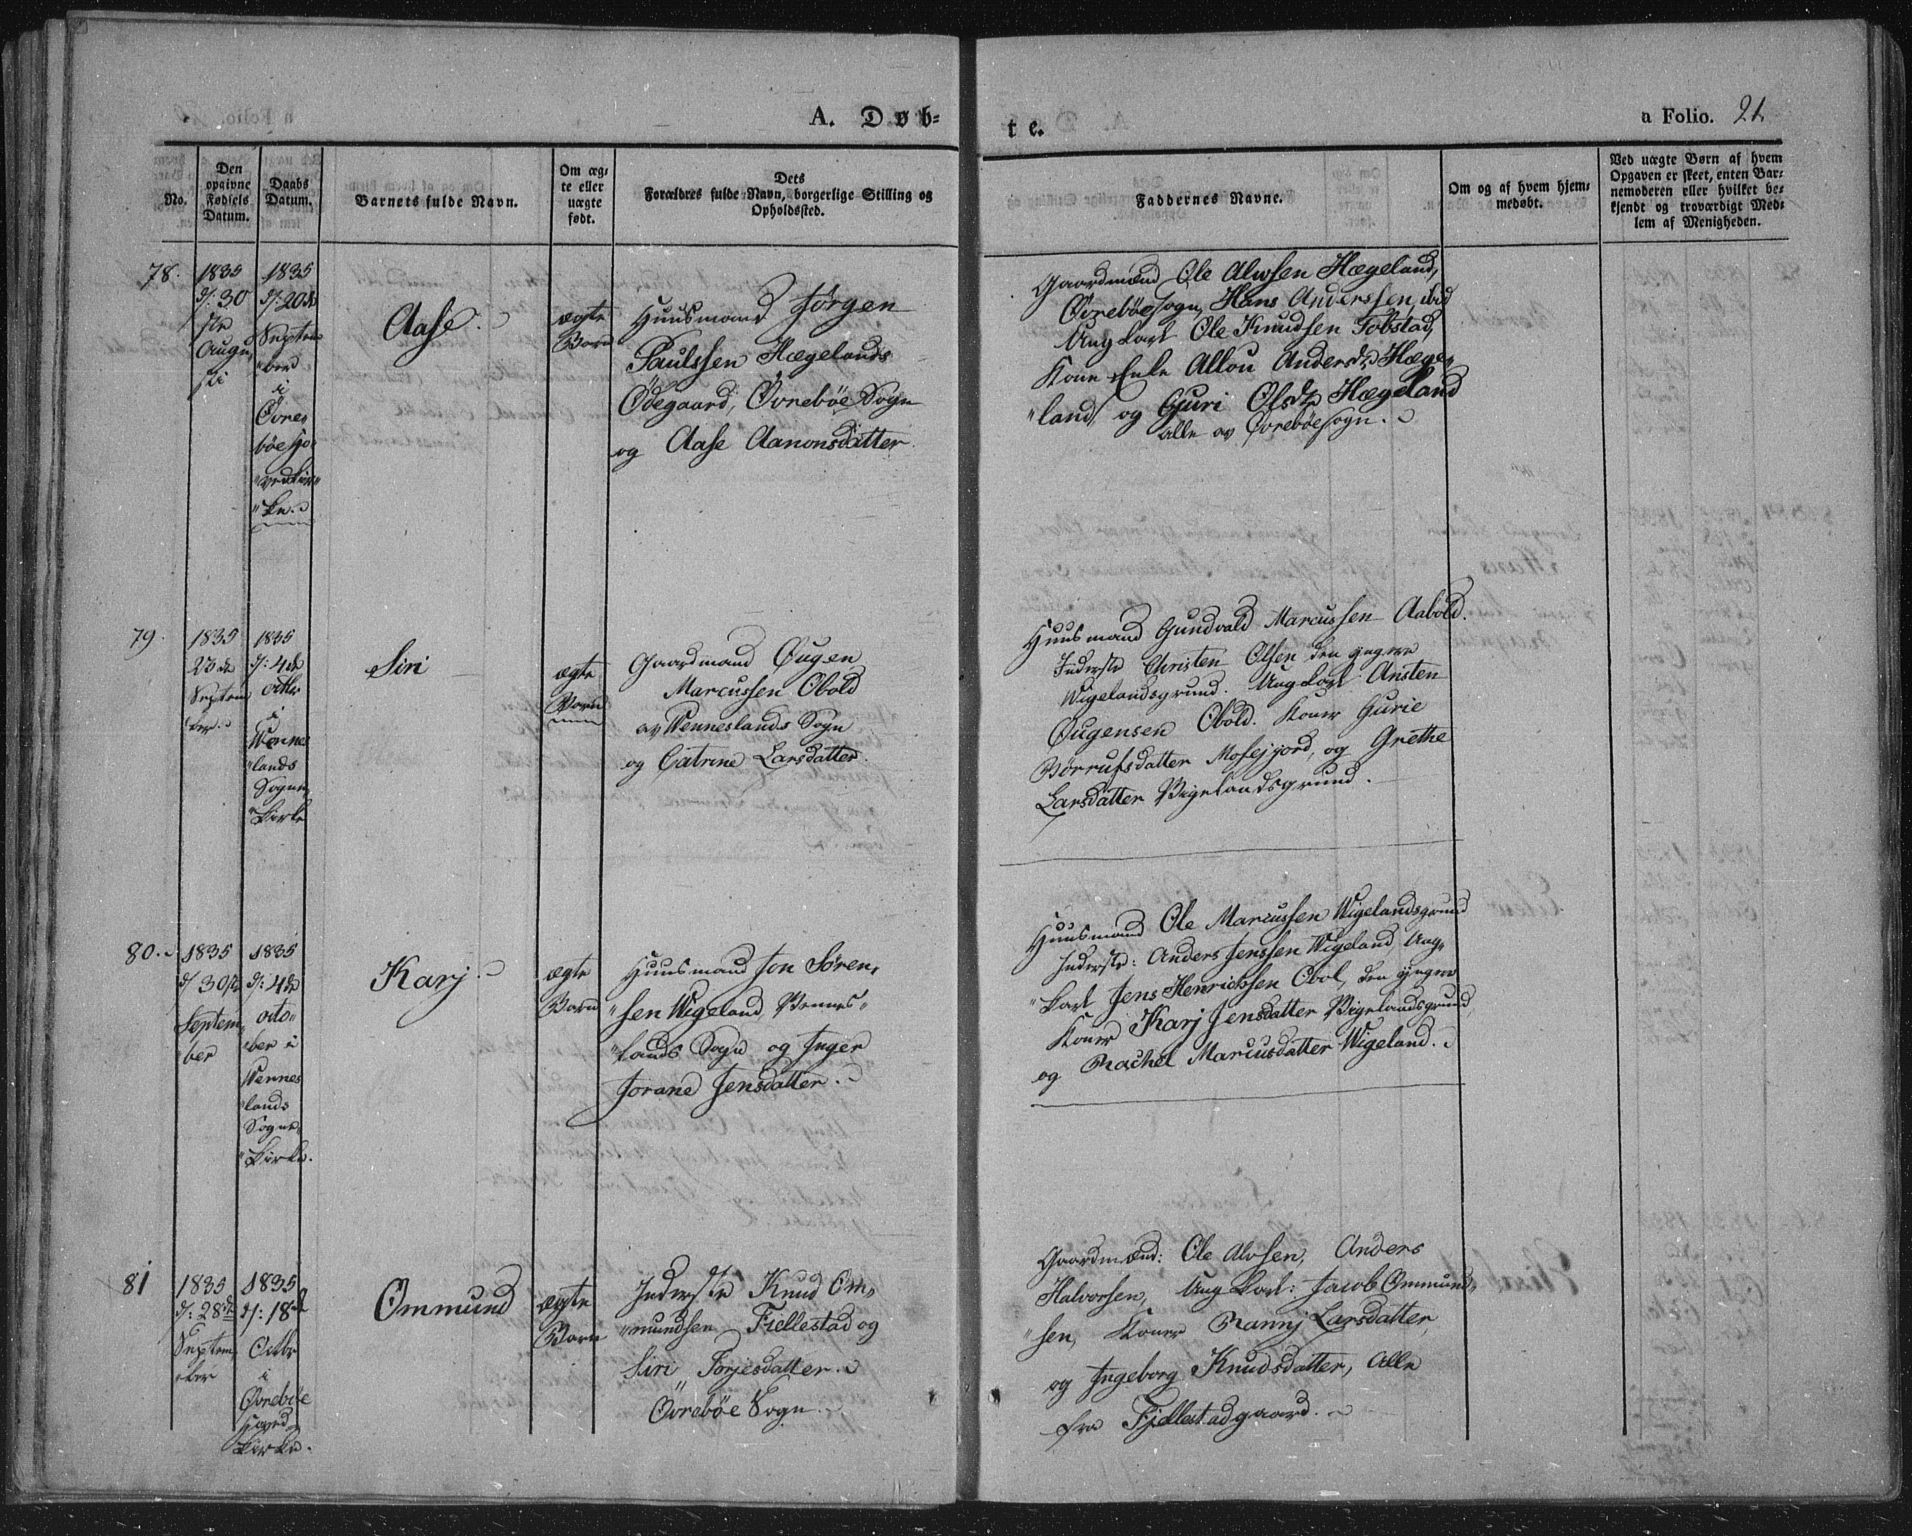 A. Døb-
te.
a Folio. 21.
No.
Den
opgivne
Fødsels
Datum.
Daabs
Datum.
Barnets fulde Navn.
Om æg-
te eller
uægte
født.
Dets
Forældres fulde Navn, borgerlige Stilling og
Opholdssted.
Faddernes Navne.
Om og af hvem hjem-
medøbt.
Ved uægte Børn af hvem
Opgaven er skeet, enten Bar-
nemoderen eller hvilket be-
kjendt og troværdigt Med-
lem af Menigheden.
78.
1835
d: 30
Augu
sti
1835
d: 20de
Septem
ber
i
Øvre-
bøe Ho-
vedkir-
ke.
Aase.
ægte
Barn
Huusmand Jørgen
Paulssen Hægelands
Ödegaard, Øvrebøe Sogn
og Aase Aanonsdatter
Gaardmænd Ole Alvsen Hægeland,
Øvrebøesogn, Hans Anderssen, ibid
Ungkarl Ole Knudsen Tobstad,
Kone Enke Allou Andersdr Hæge-
land, og Guri Olsdr Hægeland
alle av Øvrebøesogn.
79.
1835
23de
Septem
ber.
1835
d: 4de
Octbr
i
Wennes
lands
Sogne
Kirke
Siri
ægte
Barn
Gaardmand Øugen
Marcussen Obold
av Wenneslands Sogn
og Catrine Larsdatter.
Huusmand Gundvald Marcussen Aabold.
Inderste Christen Olsen den yngere
Wigelandsgrund. Ungkarl Ansten
Øugensen Obold. Koner Gurie
Børrufsdatter Mosejord, og Grethe
Larsdatter Vigelandsgrund.
80.
1835
d 30te
Septem
ber
1835
d: 4de
octo-
ber i
Wennes
lands
Sogne
Kirke.
Karj
ægte
Barn
Huusmand Jon Søren-
sen Wigeland, Vennes-
lands Sogn og Inger
Jorane Jensdatter.
Huusmand Ole Marcussen Wigelandsgrund
Inderste: Anders Jenssen Wigeland, Ung-
karl Jens Henrichsen Obol, den yngre
Koner Karj Jensdatter Vigelandsgrund,
og Rachel Marcusdatter Wigeland.
81
1835
d: 28de
Septem
ber
1835
d: 18de
Octbr
i
Øvrebøe
Hoved
Kirke.
Ommund
ægte
Barn
Inderste Knud Om-
mundsen Fiellestad og
Siri Torjesdatter.
Øvrebøe Sogn.
Gaardmænd: Ole Alvsen, Anders
Halvorsen, Ungkarl: Jacob Ommund-
sen, Koner Rannj Larsdatter
og Ingeborg Knudsdatter, Alle
fra Fjellestadgaard.